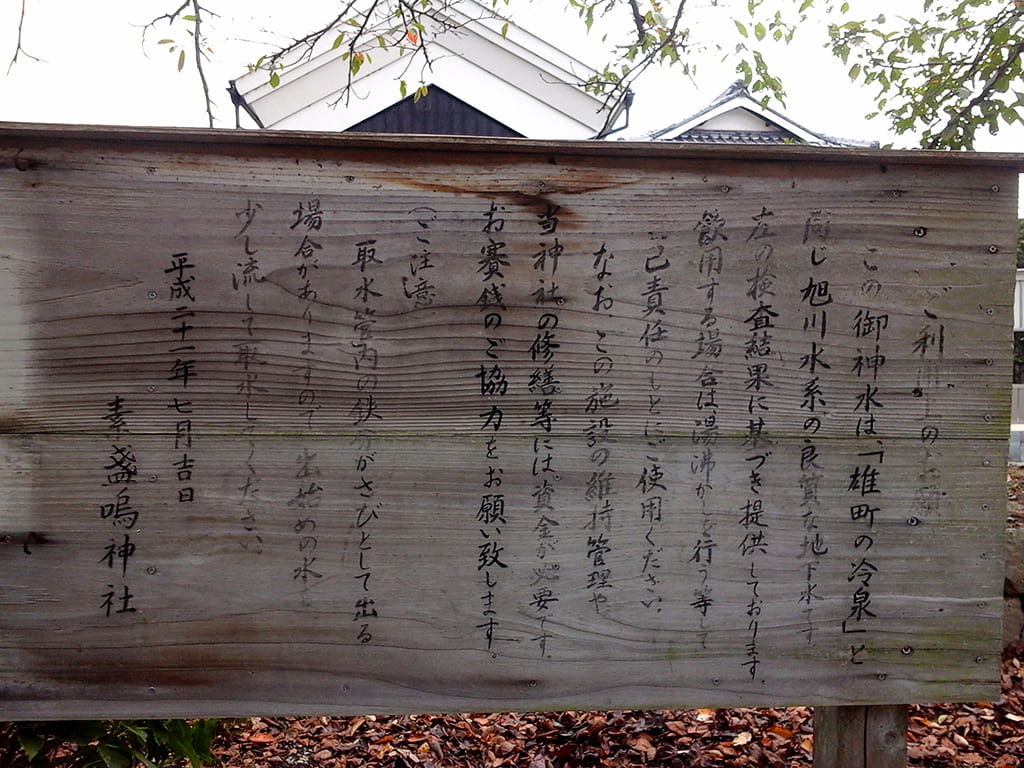 ご利用上のお願い
この御神水は、「雄町の冷泉」と
同じ旭川水系の良質な地下水です。
左の検査結果に基づき提供しております。
飲用する場合は湯沸かしを行う等して
自己責任のもとにご使用ください。
なおこの施設の維持管理や、
当神社の修繕等には資金が必要です。
お賽銭のご協力をお願い致します。
(ご注意)
取水管内の鉄分がさびとして出る
場合がありますので出始めの水を
少し流して取水してください。
平成二十一年七月吉日
素盞嗚神社